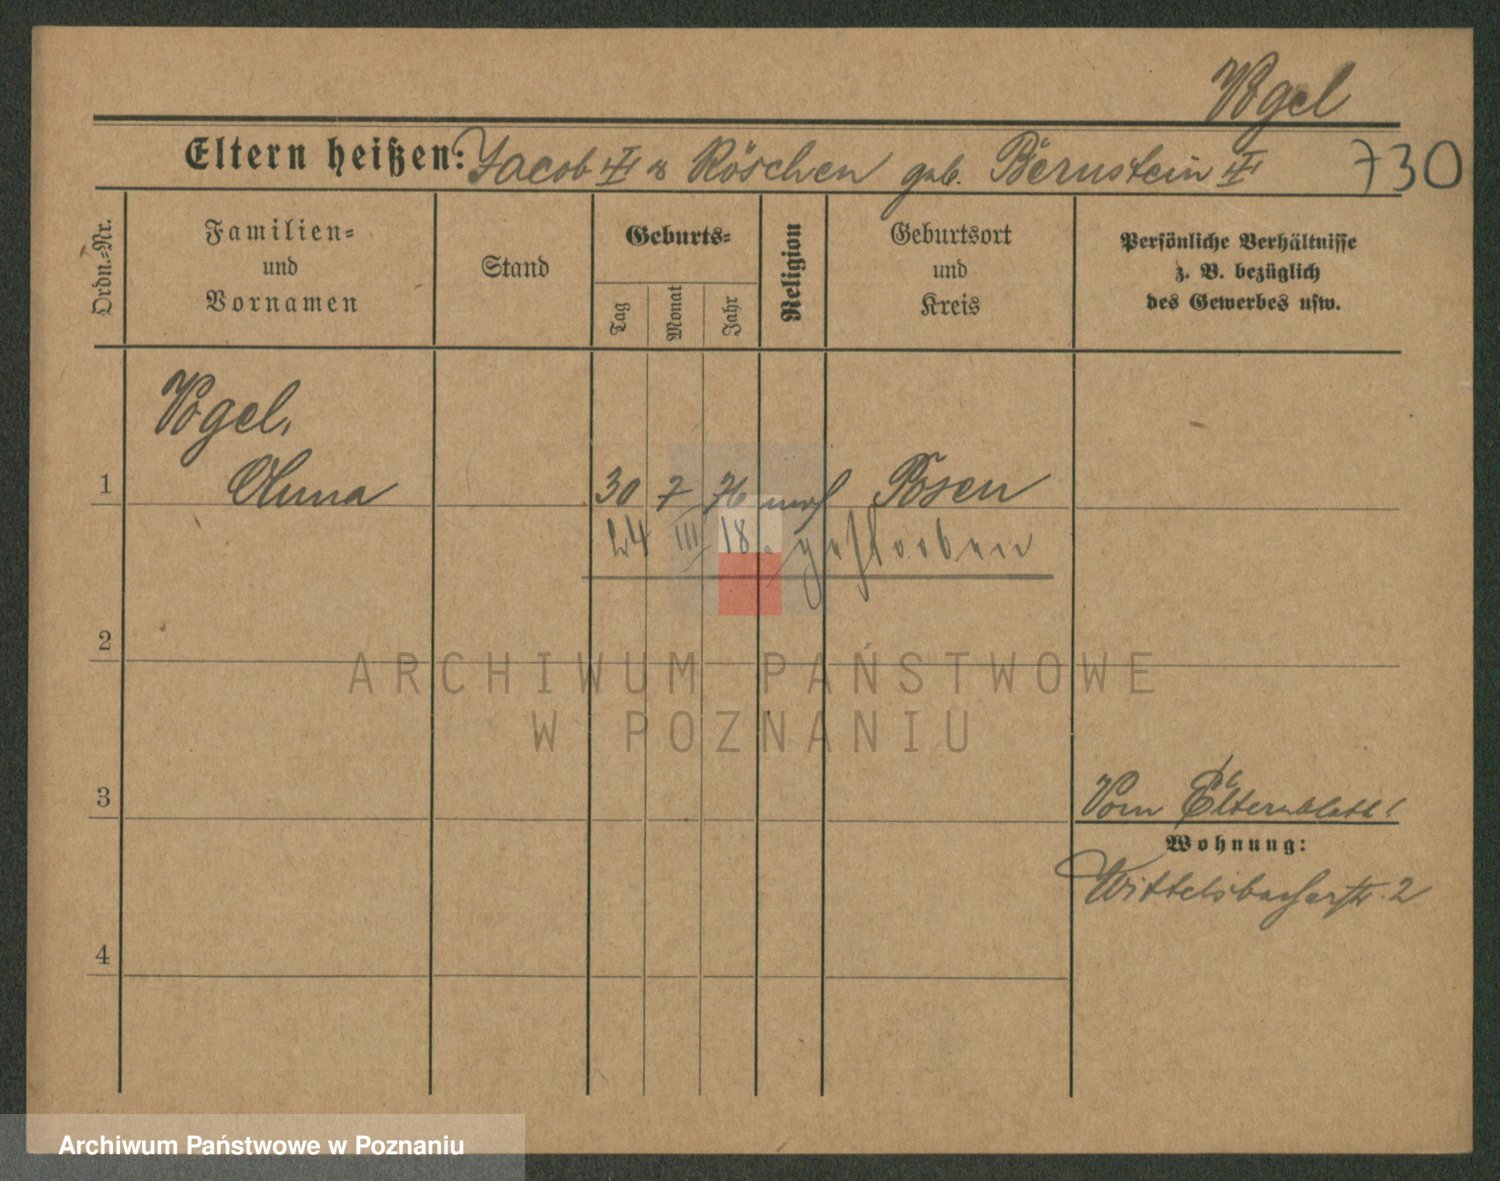 Vogel
Eltern heißen: Jacob u. Röschen geb. Bernstein
730
Ordn.-Nr.
Familien-
und
Vornamen
Stand
Geburts-
Tag
Monat
Jahr
Religion
Geburtsort
und
Kreis
Persönliche Verhältnisse
z. B. bezüglich
des Gewerbes usw.
Vogel,
1 Anna 30 7 76 mos Posen
24 III 18. gestorben
2
ARCHIWUM PAŃSTWOWE
W POZNANIU
3
Vom Elternblatt!
Wohnung:
Wittelsbacherstr. 2
4
Archiwum Państwowe w Poznaniu